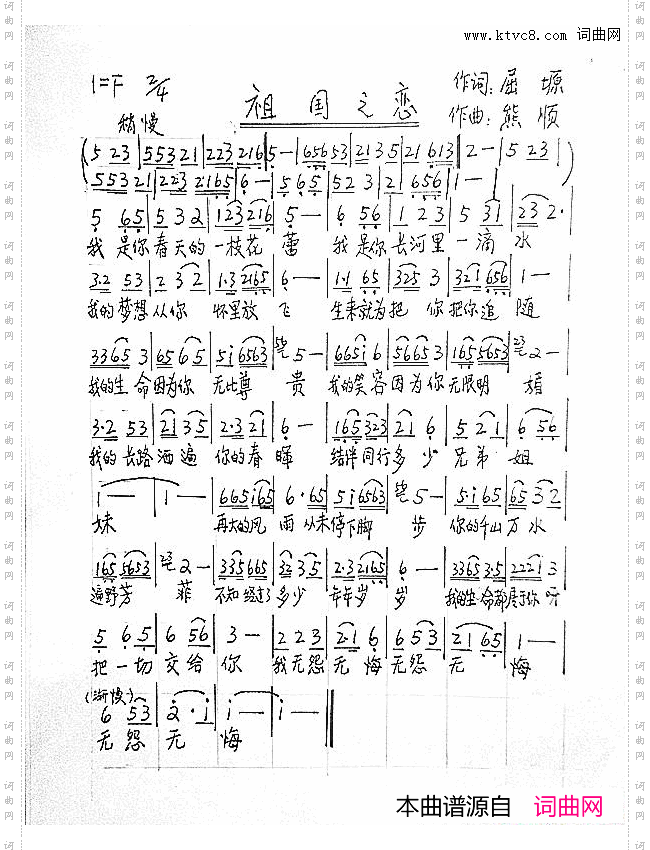 www.ktvc8.com 词曲网
1=F 2/4
祖国之恋
作词:屈塬
作曲:熊顺
稍慢
(5 23|553321|223216|5—|65653|2135|21613|2—|5 23|
553321|2232165|6—|565|523|2|656|1—|)
5 65|532|123216|5—|6 56|123|5 31|23 2·|
我是你春天的一枝花蕾 我是你长河里一滴水
3·2 53|232|1·32165|6—|1·1 65|325 3|321656|1—|
我的梦想从你怀里放飞 生来就为把你把你追随
3365 3|6565|5i6563|5—|665i6|56653|1655653|2—|
我的生命因为你无比尊贵 我的笑容因为你无限明媚
3·2 53|2135|2·321|6—|165323|216|521|6 56|
我的长路洒遍你的春晖 结伴同行多少兄弟姐
i—|i—|665i65|6·65|5i6563|5—|5·i65|6532|
妹 再大的风雨从未停下脚步 你的千山万水
1655653|2—|335665|3235|2·32165|6—|33653·5|22213|
遍野芳菲 不知经过了多少年年岁岁 我的生命都属于你呀
5 65|6 56|3—|2 23|2·1 6|6 53|2165|1—|
把一切交给你 我无怨无悔无怨无悔
(渐慢)
6 53|2·i|i—|i—‖
无怨无悔
本曲谱源自 词曲网
词曲网